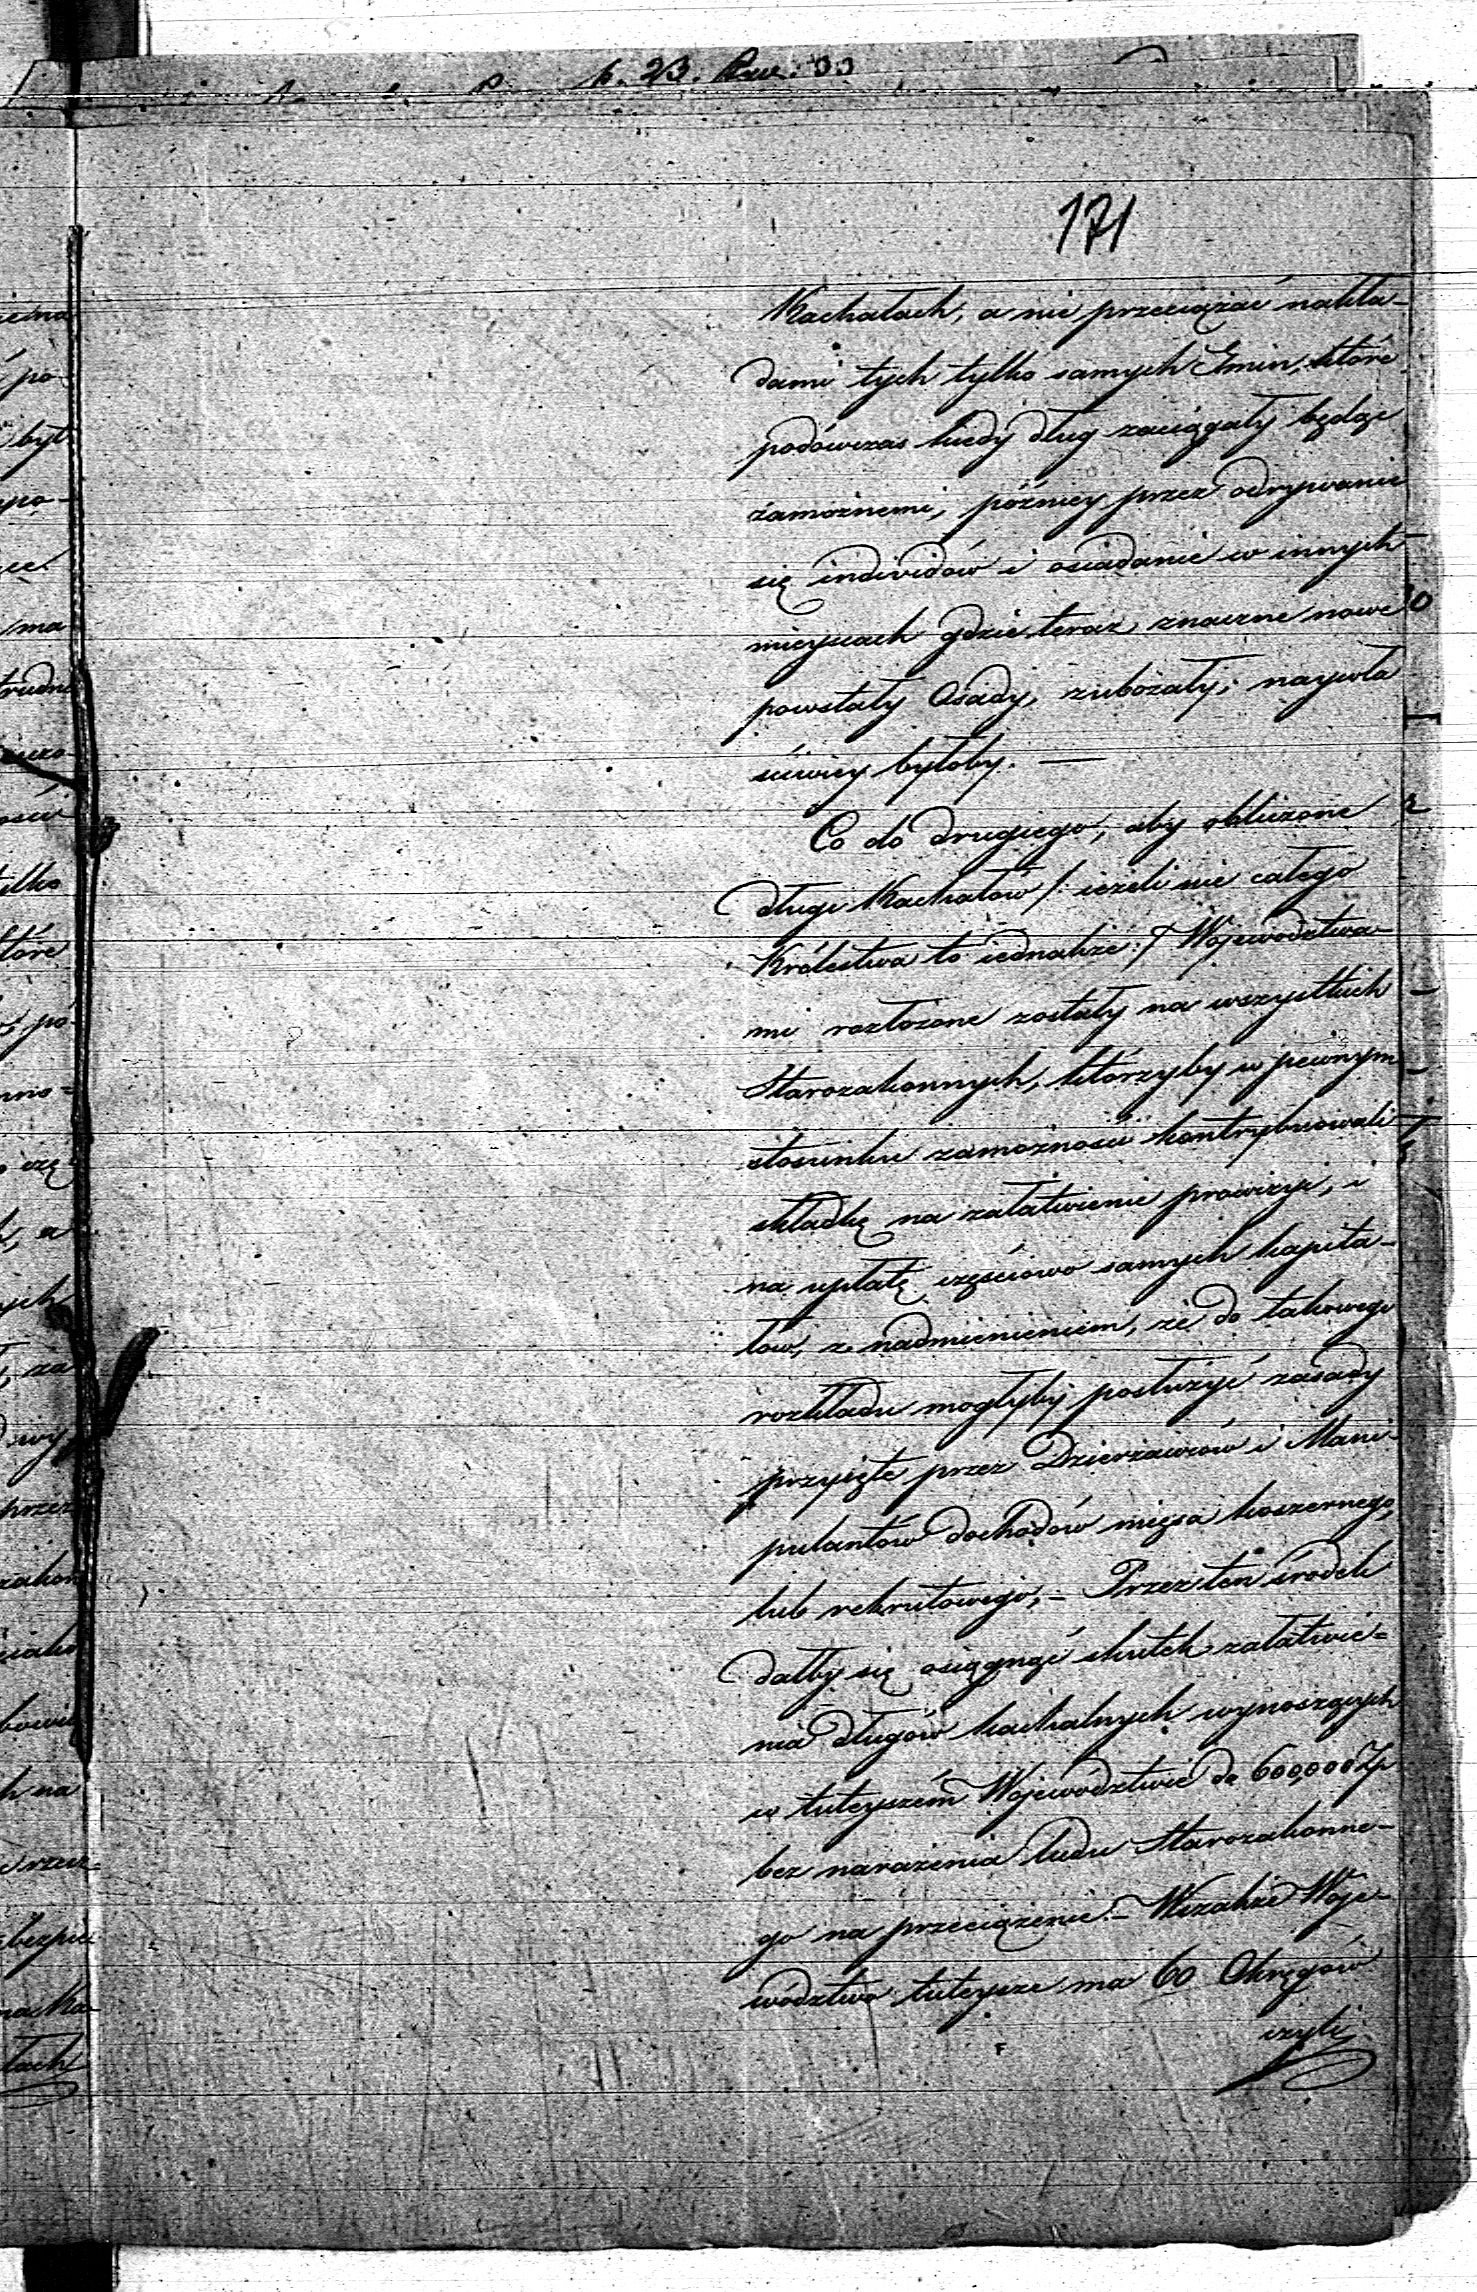 171
Kachałach, a nie przeciążać nakła-
dami tych tylko samych Gmin, które
podówczas kiedy dług zaciągały będąc
zamożnemi, późniey przez odrywanie
się individów i osiadanie w innych
mieyscach gdzie teraz znaczne nowe
powstały Osady, zubożały; naywła
ściwiey byłoby. —
Co do drugiego, aby obliczone
długi Kachałów /: ieżeli nie całego
Królestwa to iednakże :/ Województwa-
mi rozłożone zostały na wszystkich
Starozakonnych, którzyby w pewnym
stosunku zamożności kontrybuowali
składkę na załatwienie prowizyi, i
na upłatę częściowo samych kapita-
łów, z nadmienieniem, że do takowego
rozkładu mogłyby posłużyć zasady
przyięte przez Dzierżawców i Mani-
pulantów dochodów mięsa koszernego,
lub rekrutowego, – Przez ten środek
dałby się osiągnąć skutek załatwie=
nia długów kachalnych wynoszących
w tuteyszém Województwie do 600,000 Zp
bez narażenia ludu Starozakonne-
go na przeciążenie. – Wszakże Woje-
wództwo tuteysze ma 60 Okręgów
czyli